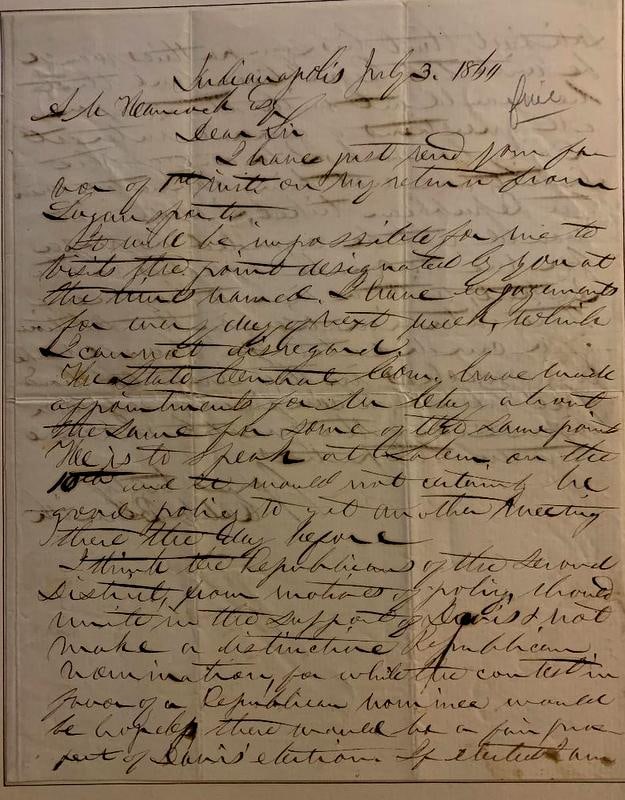 Indianapolis July 3. 1860
A M Hancock Esq
Dear Sir
I have just read your fa
vor of 1st inst on my return from
Logansport.
It will be impossible for me to
visit the point designated by you at
the time named. I have engagements
for every day of next week, which
I can not disregard.
The State Central Com. have made
appointments for Mr about
the same for some of the same points
He is to speak at Salem on the
10th and it would not certainly be
good policy to get another meeting
there the day before
I think the Republicans of the Second
District, from motives of policy, should
unite in the support of Davis & not
make a distinctive Republican
nomination, for while the contest in
favor of a Republican nominee would
be hopeless there would be a fair pros
pect of Davis' election. If elected I am